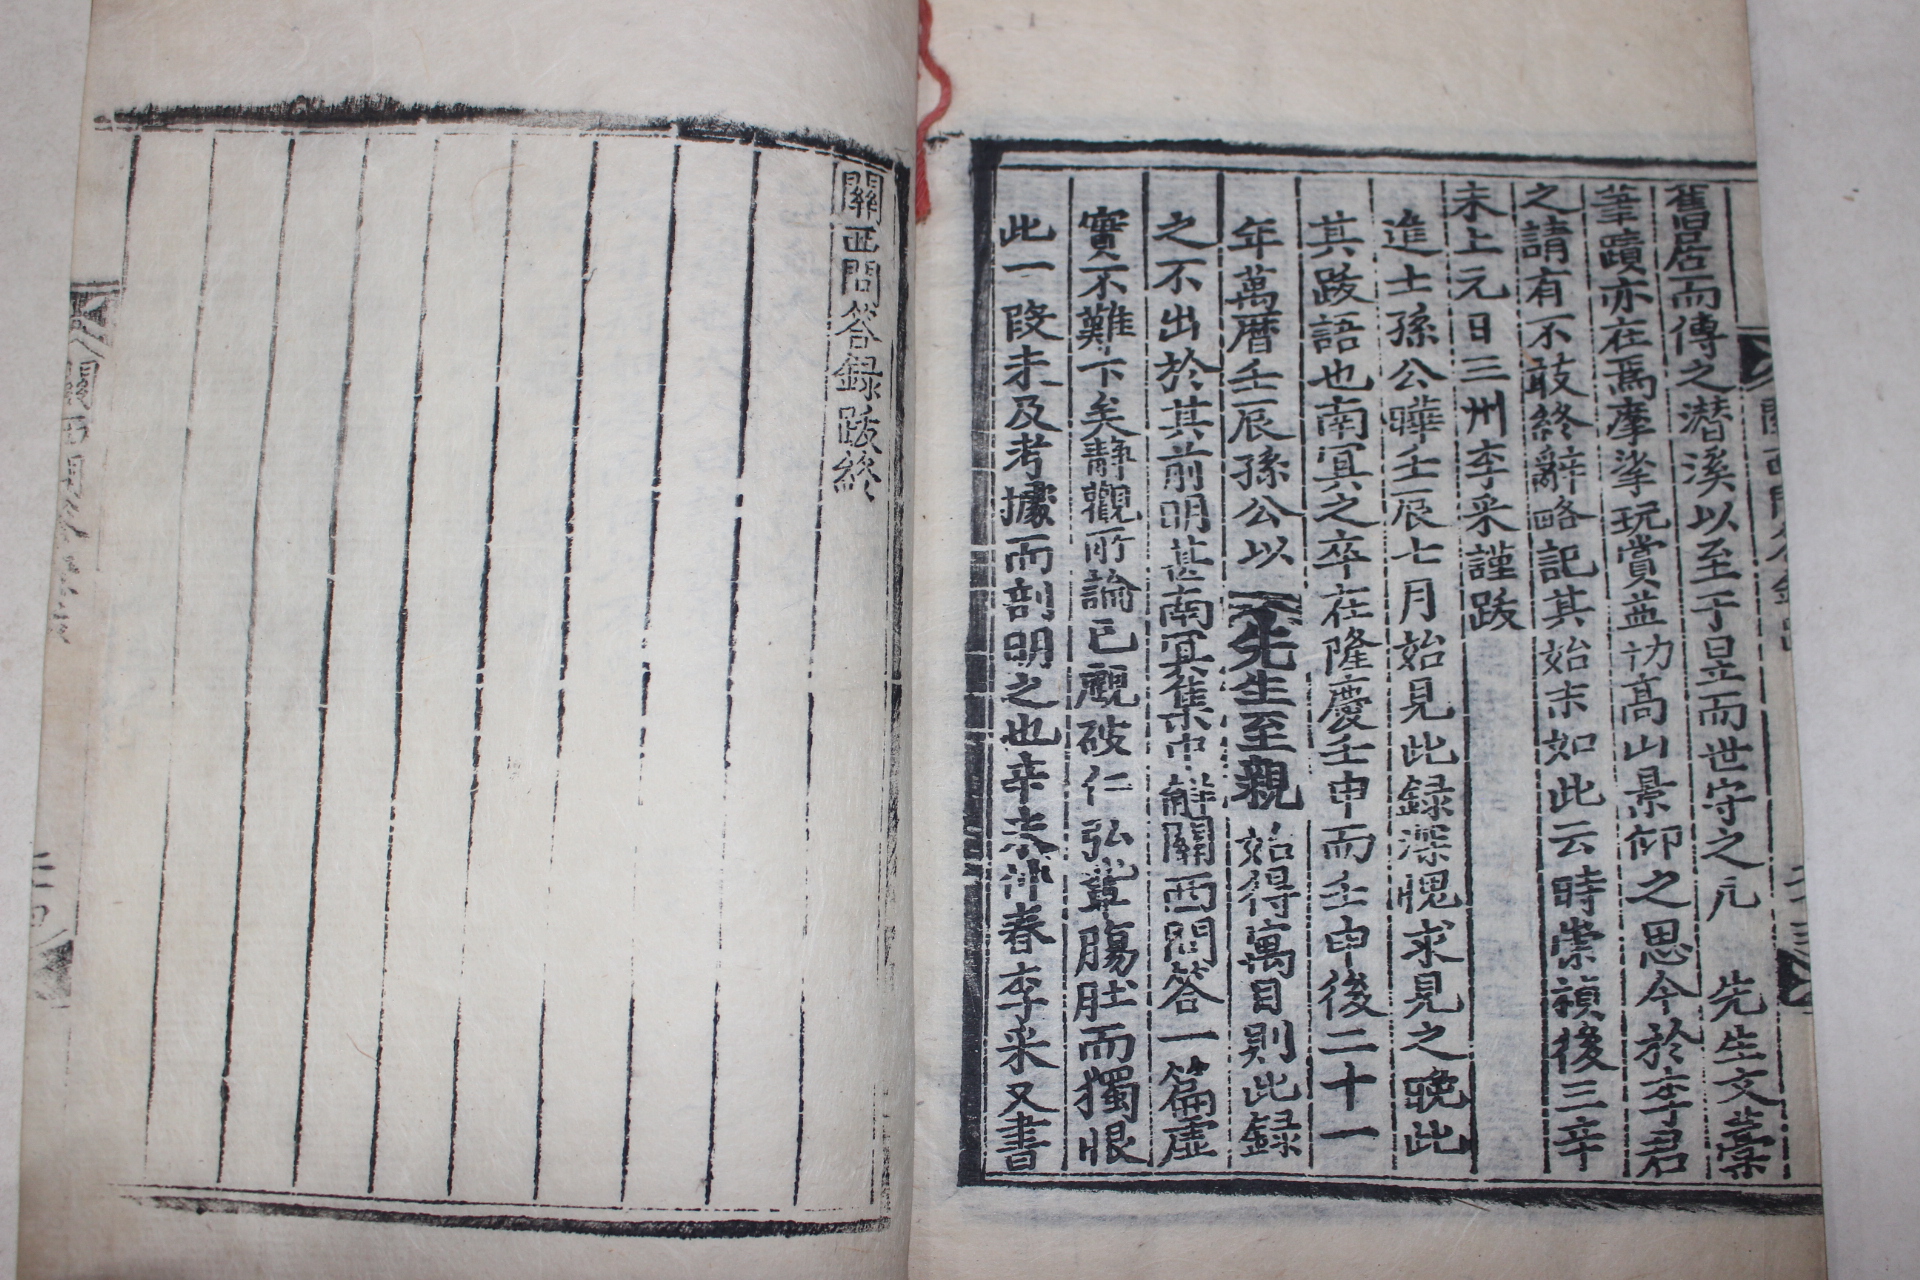 舊居而傳之潜溪以至于昰而世守之凢　先生文藁
筆蹟亦在焉摩挲玩賞益切高山景仰之思今於李君
之請有不敢終辭略記其始末如此云時崇禎後三辛
未上元日三州李采謹跋
進士孫公曄壬辰七月始見此録深愧求見之晚此
其跋語也南冥之卒在隆慶壬申而壬申後二十一
年萬曆壬辰孫公以先生至親始得寓目則此録
之不出於其前明甚南冥集中觧關西問答一篇虛
實不難卞矣靜觀所論已覷破仁弘輩膓肚而獨恨
此一段未及考據而剖明之也辛未仲春李采又書
關西問答録跋終
關西問答録跋
二十三
二十四